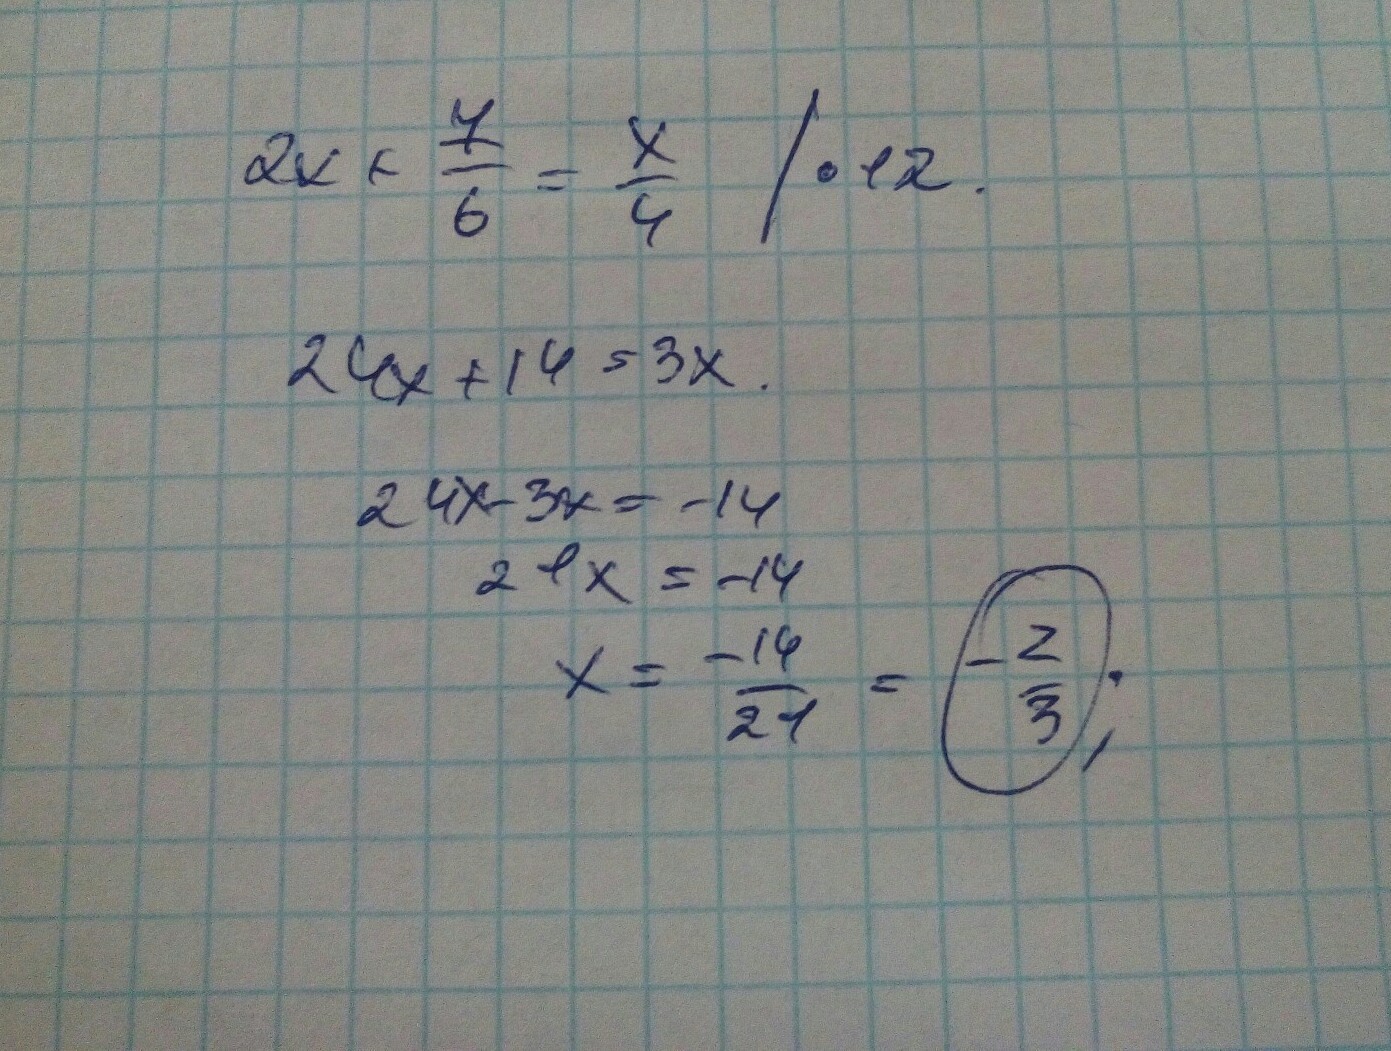 2x + 7/6 = x/4 / • 12.
24x + 14 = 3x.
24x - 3x = -14
21x = -14
x = -14/21 = -2/3;